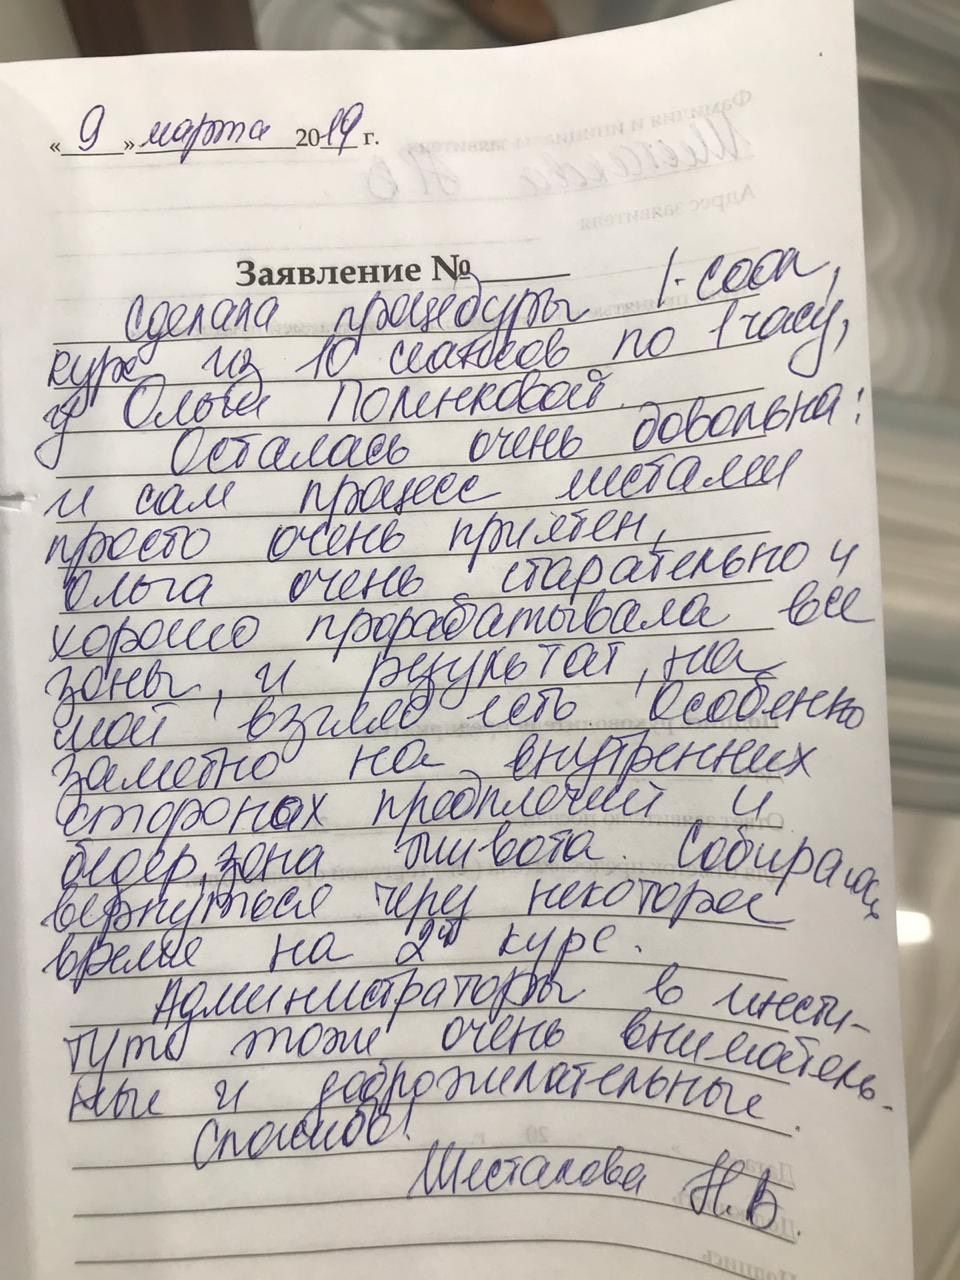 « 9 » марта 2019 г.
Заявление №
Сделала процедуры
курс из 10 сеансов по 1 часу,
у Ольги Поленковой.
Осталась очень довольна:
и сам процесс
просто очень приятен,
Ольга очень старательно и
хорошо прорабатывала все
зоны, и результат, на
мой взгляд есть. Особенно
заметно на внутренних
сторонах предплечий и
бедер, зона живота. Собираюсь
вернуться через некоторое
время на 2й курс.
Администраторы в инсти-
туте тоже очень вниматель-
ные и доброжелательные.
Спасибо!
Шесталова Н.В.